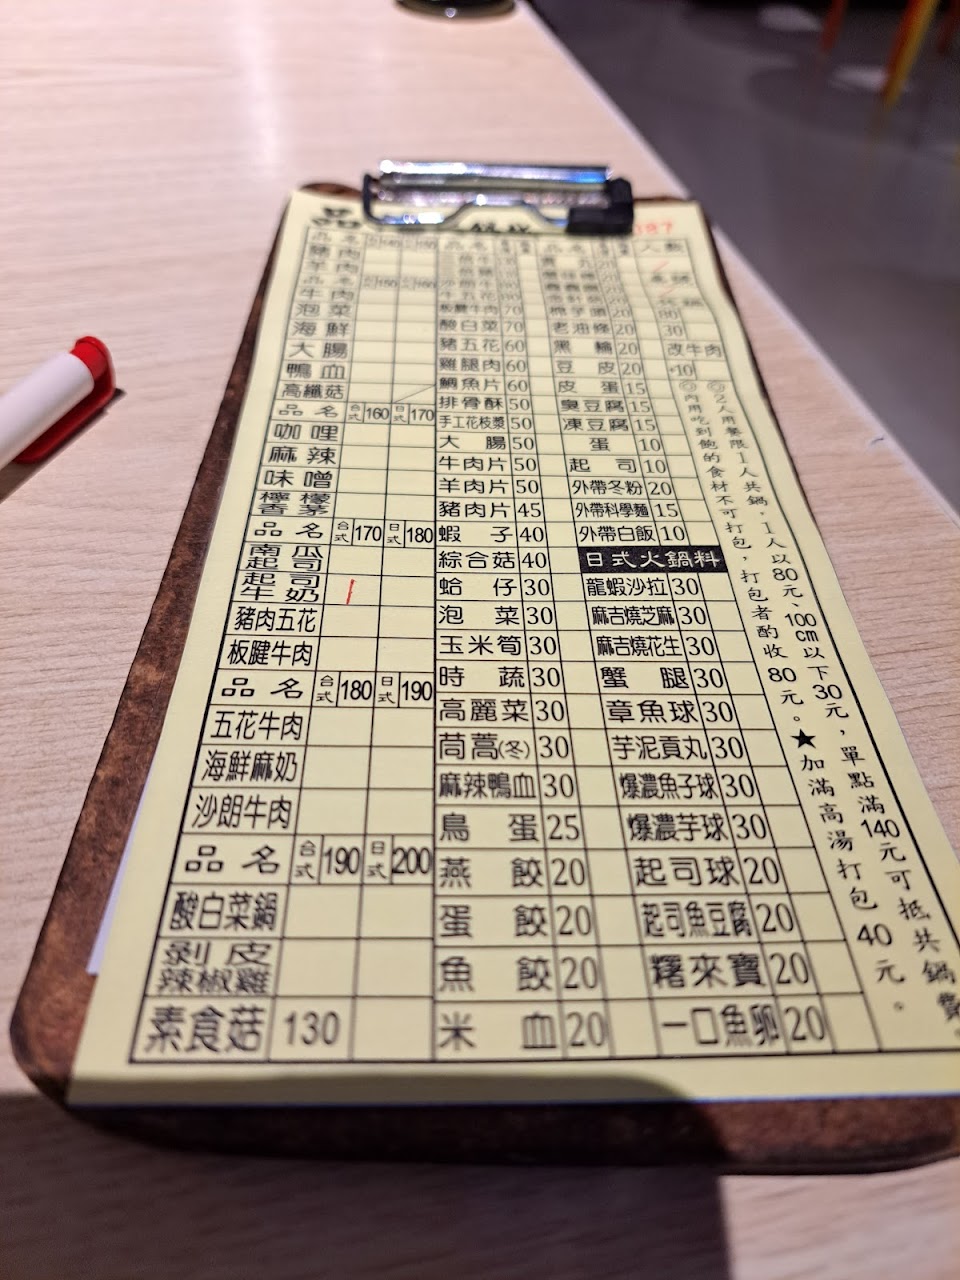 品
187
品名
豬肉
羊肉
品名
牛肉
泡菜
海鮮
大腸
鴨血
高纖菇
品名 台式 160 日式 170
咖哩
麻辣
味噌
檸檬香茅
品名 台式 170 日式 180
南瓜起司
起司牛奶
豬肉五花
板腱牛肉
品名 台式 180 日式 190
五花牛肉
海鮮麻奶
沙朗牛肉
品名 台式 190 日式 200
酸白菜鍋
剝皮辣椒雞
素食菇 130
板腱牛肉 70
酸白菜 70
豬五花 60
雞腿肉 60
鯛魚片 60
排骨酥 50
手工花枝漿 50
大腸 50
牛肉片 50
羊肉片 50
豬肉片 45
蝦子 40
綜合菇 40
蛤仔 30
泡菜 30
玉米筍 30
時蔬 30
高麗菜 30
茼蒿(冬) 30
麻辣鴨血 30
鳥蛋 25
燕餃 20
蛋餃 20
魚餃 20
米血 20
老油條 20
黑輪 20
豆皮 20
皮蛋 15
臭豆腐 15
凍豆腐 15
蛋 10
起司 10
外帶冬粉 20
外帶科學麵 15
外帶白飯 10
日式火鍋料
龍蝦沙拉 30
麻吉燒芝麻 30
麻吉燒花生 30
蟹腿 30
章魚球 30
芋泥貢丸 30
爆濃魚子球 30
爆濃芋球 30
起司球 20
起司魚豆腐 20
糬來寶 20
一口魚卵 20
人數
80
30
改牛肉
+10
◎2人用餐限1人共鍋。1人以80元、100cm以下30元，單點滿140元可抵共鍋費。
◎內用吃到飽的食材不可打包，打包者酌收80元。★加滿高湯打包40元。